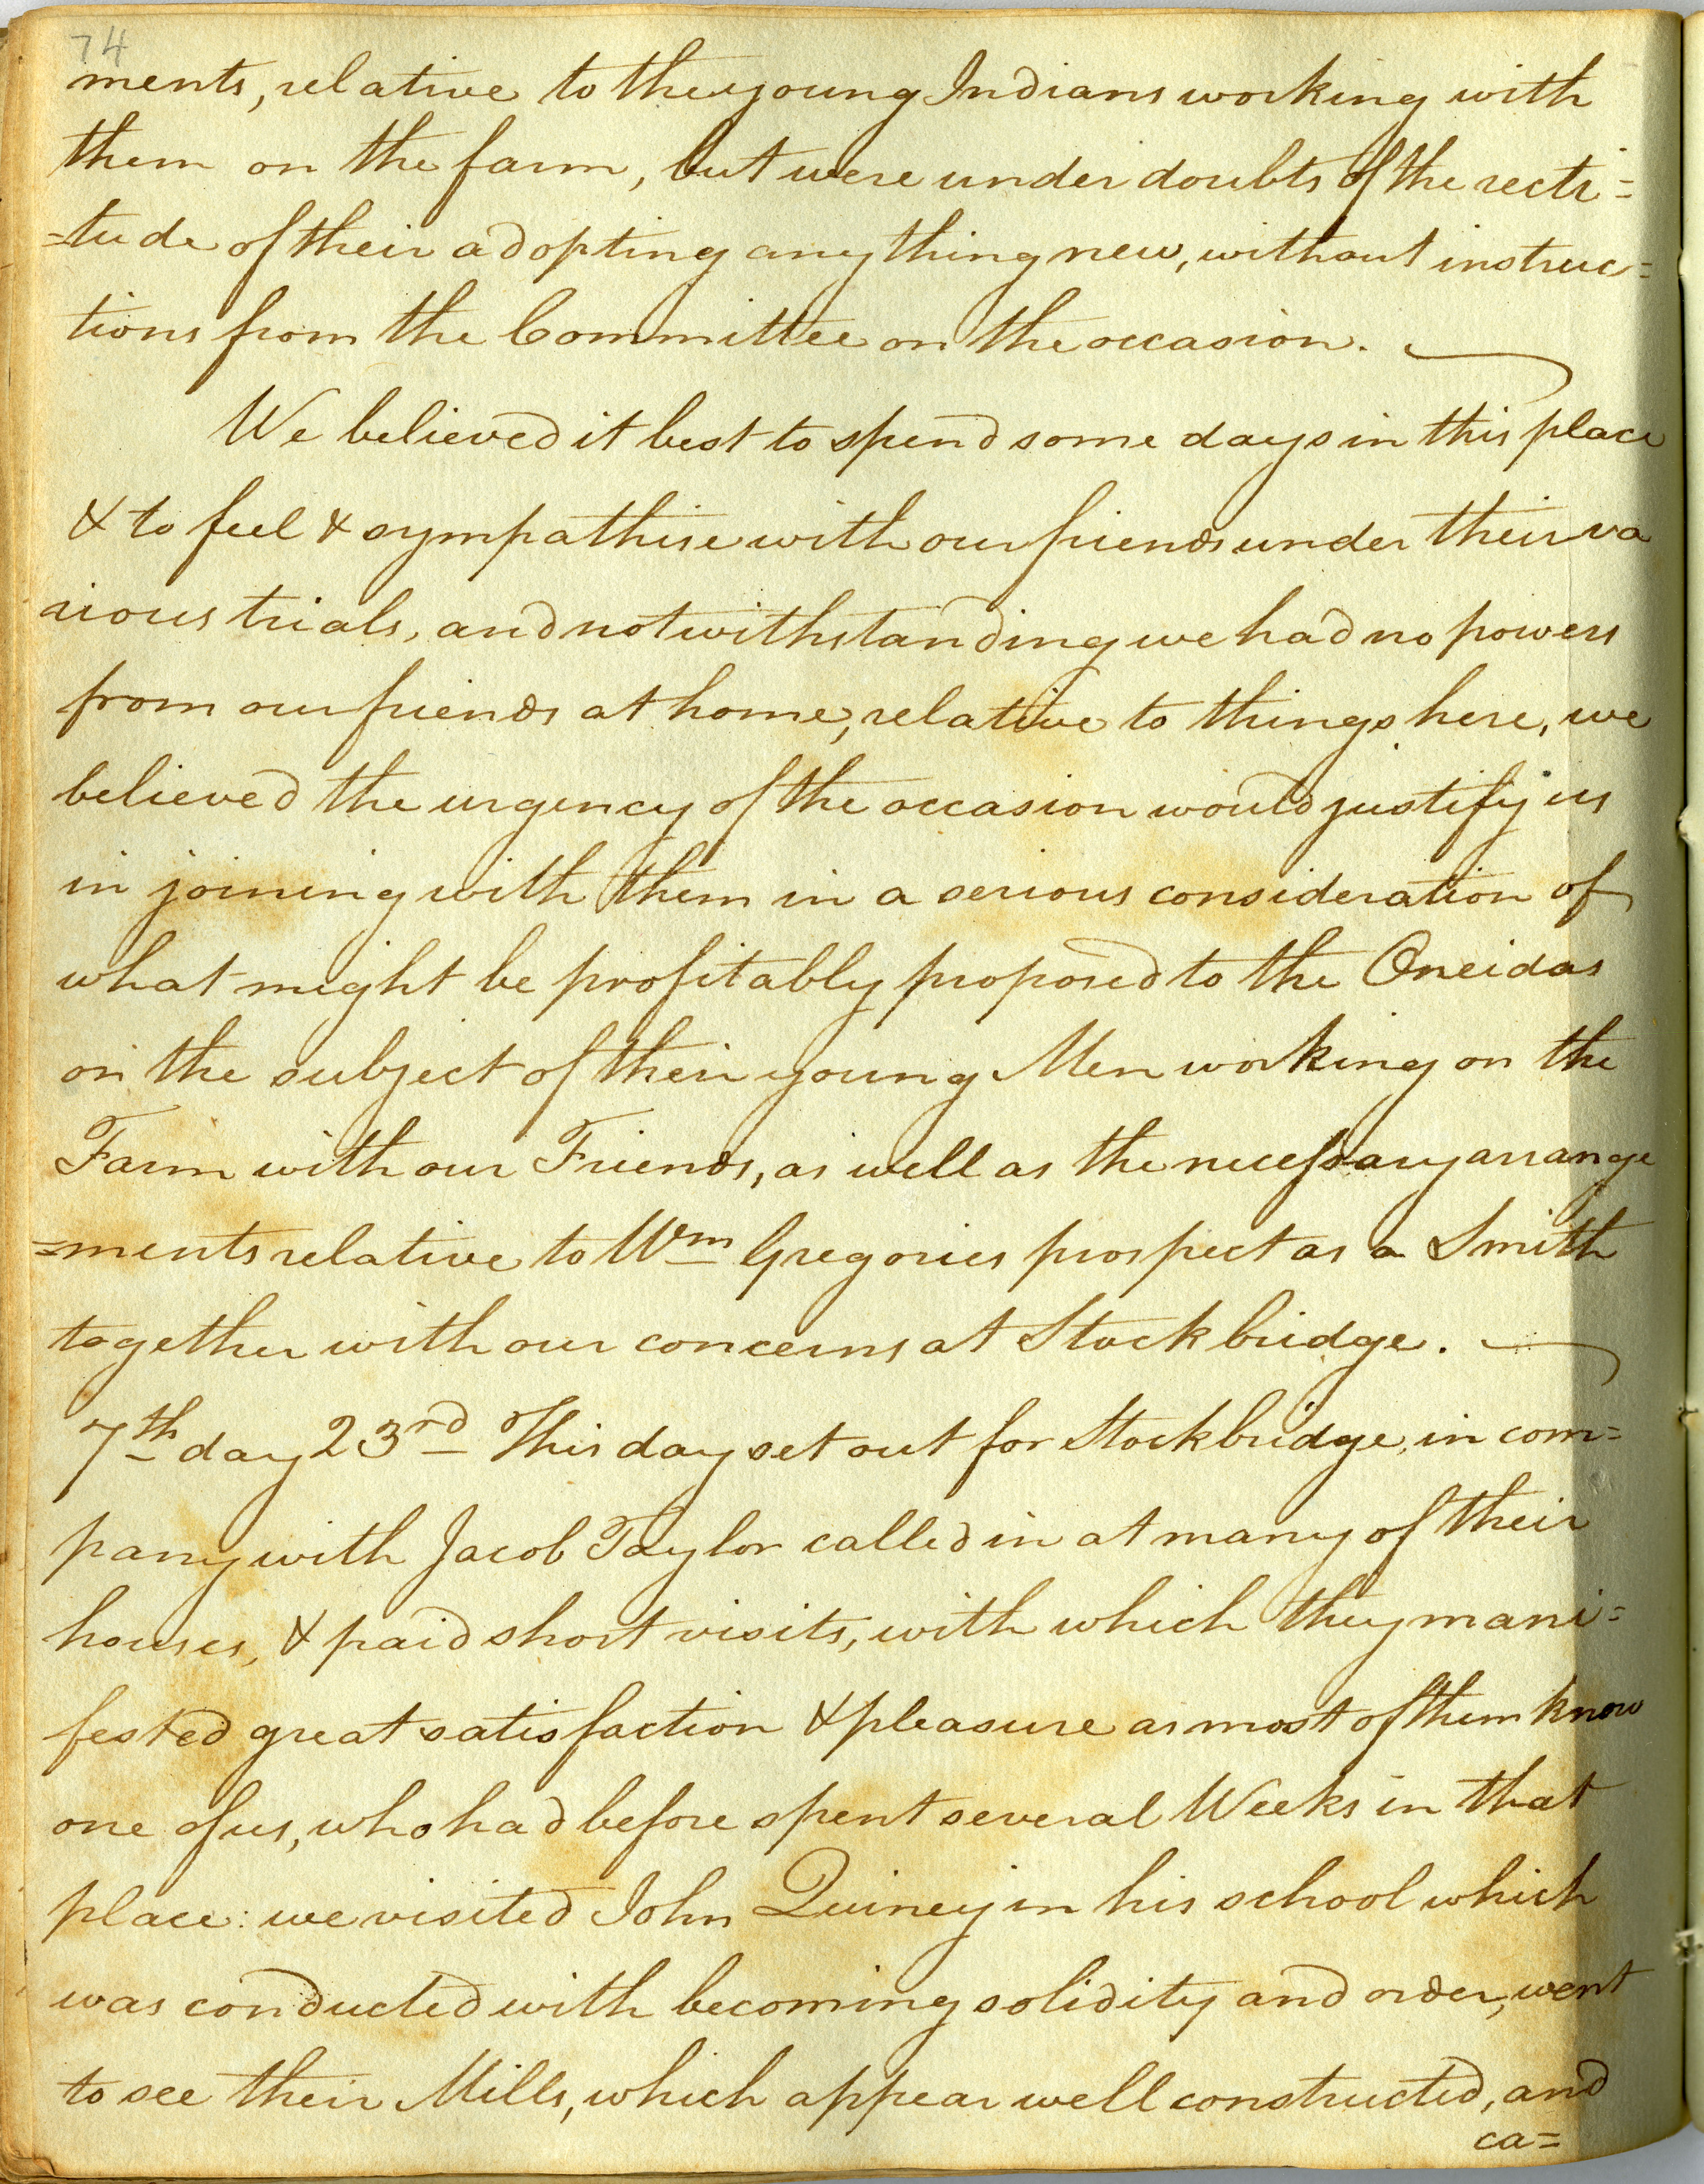 74
ments, relative to the young Indians working with
them on the farm, but were under doubts of the recti=
=tude of their adopting any thing new, without instruc=
tions from the Committee on the occasion.
We believed it best to spend some days in this place
& to feel & sympathise with our friends under their va
rious trials, and notwithstanding we had no powers
from our friends at home, relative to things here, we
believed the urgency of the occasion would justify us
in joining with them in a serious consideration of
what might be profitably proposed to the Oneidas
on the subject of their young Men working on the
Farm with our Friends, as well as the necessary arrange
=ments relative to Wm Gregories prospect as a Smith
together with our concerns at Stockbridge.
7th day 23rd This day set out for Stockbridge, in com=
pany with Jacob Taylor called in at many of their
houses, & paid short visits, with which they mani=
fested great satisfaction & pleasure as most of them know
one of us, who had before spent several Weeks in that
place: we visited John Quiney in his school which
was conducted with becoming solidity and order, went
to see their Mills, which appear well constructed, and
ca=